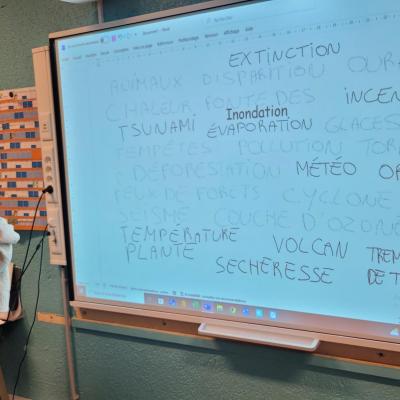 EXTINCTION
ANIMAUX DISPARITION OURA
CHALEUR FONTE DES INCEN
Inondation
TSUNAMI ÉVAPORATION GLACES
TEMPÊTES POLLUTION TOR
DÉFORESTATION MÉTÉO OR
FEUX DE FORÊTS CYCLONE
SÉISME COUCHE D'OZONE
TEMPÉRATURE VOLCAN TREM
PLANTE SÉCHERESSE DE T